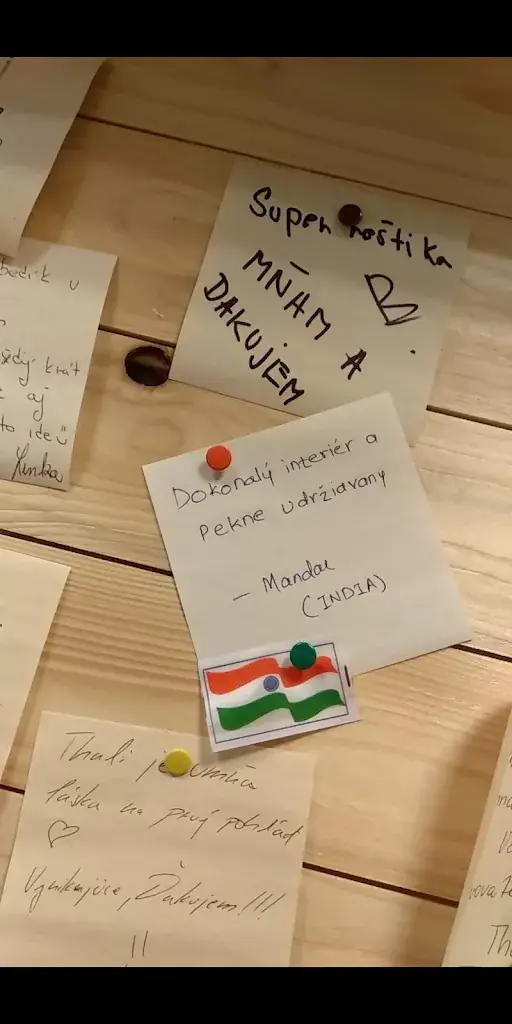 bedík v
aždý krát
aj
to ide
Lenka
Super koštika
MŇAM A
ĎAKUJEM
Dokonalý interiér a
pekne udržiavaný
– Mandar
(INDIA)
Thali je
láska na prvý pohľad
♡
Vynikajúce, Ďakujem!!!
Th